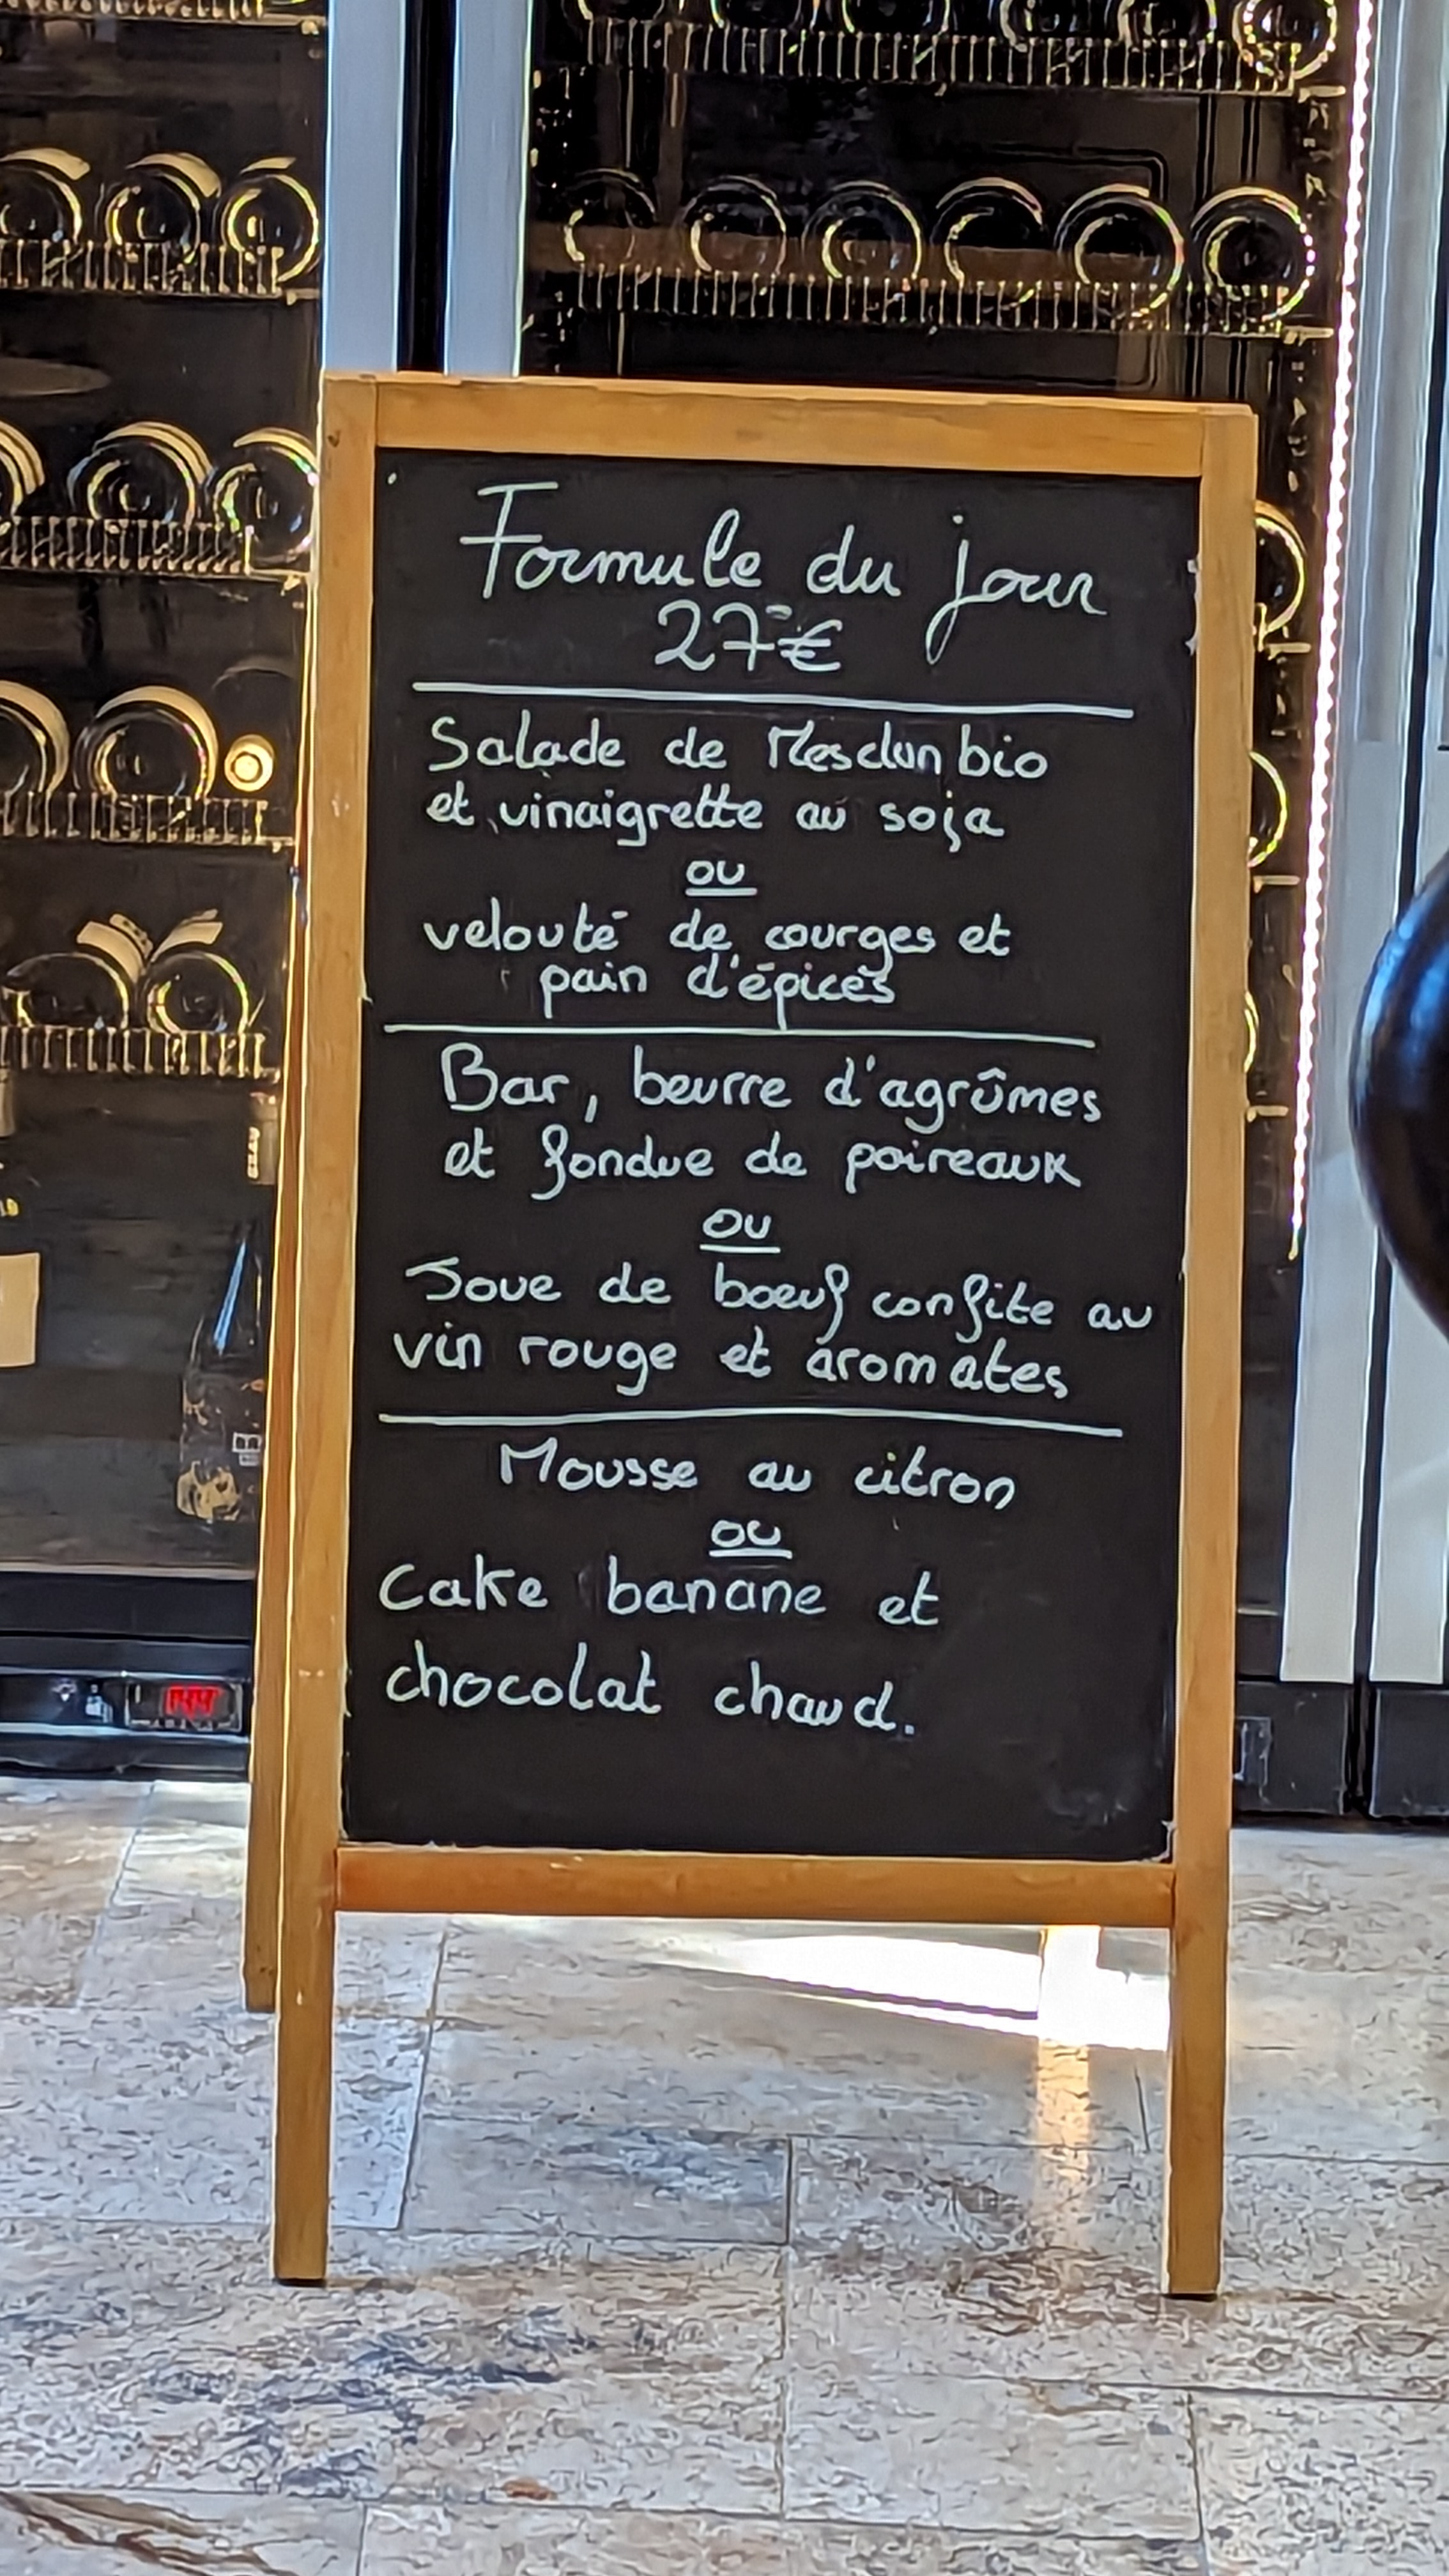 Formule du jour
27€
Salade de Mesclun bio
et vinaigrette au soja
ou
velouté de courges et
pain d'épices
Bar, beurre d'agrûmes
et fondue de poireaux
ou
Joue de boeuf confite au
vin rouge et aromates
Mousse au citron
ou
Cake banane et
chocolat chaud.